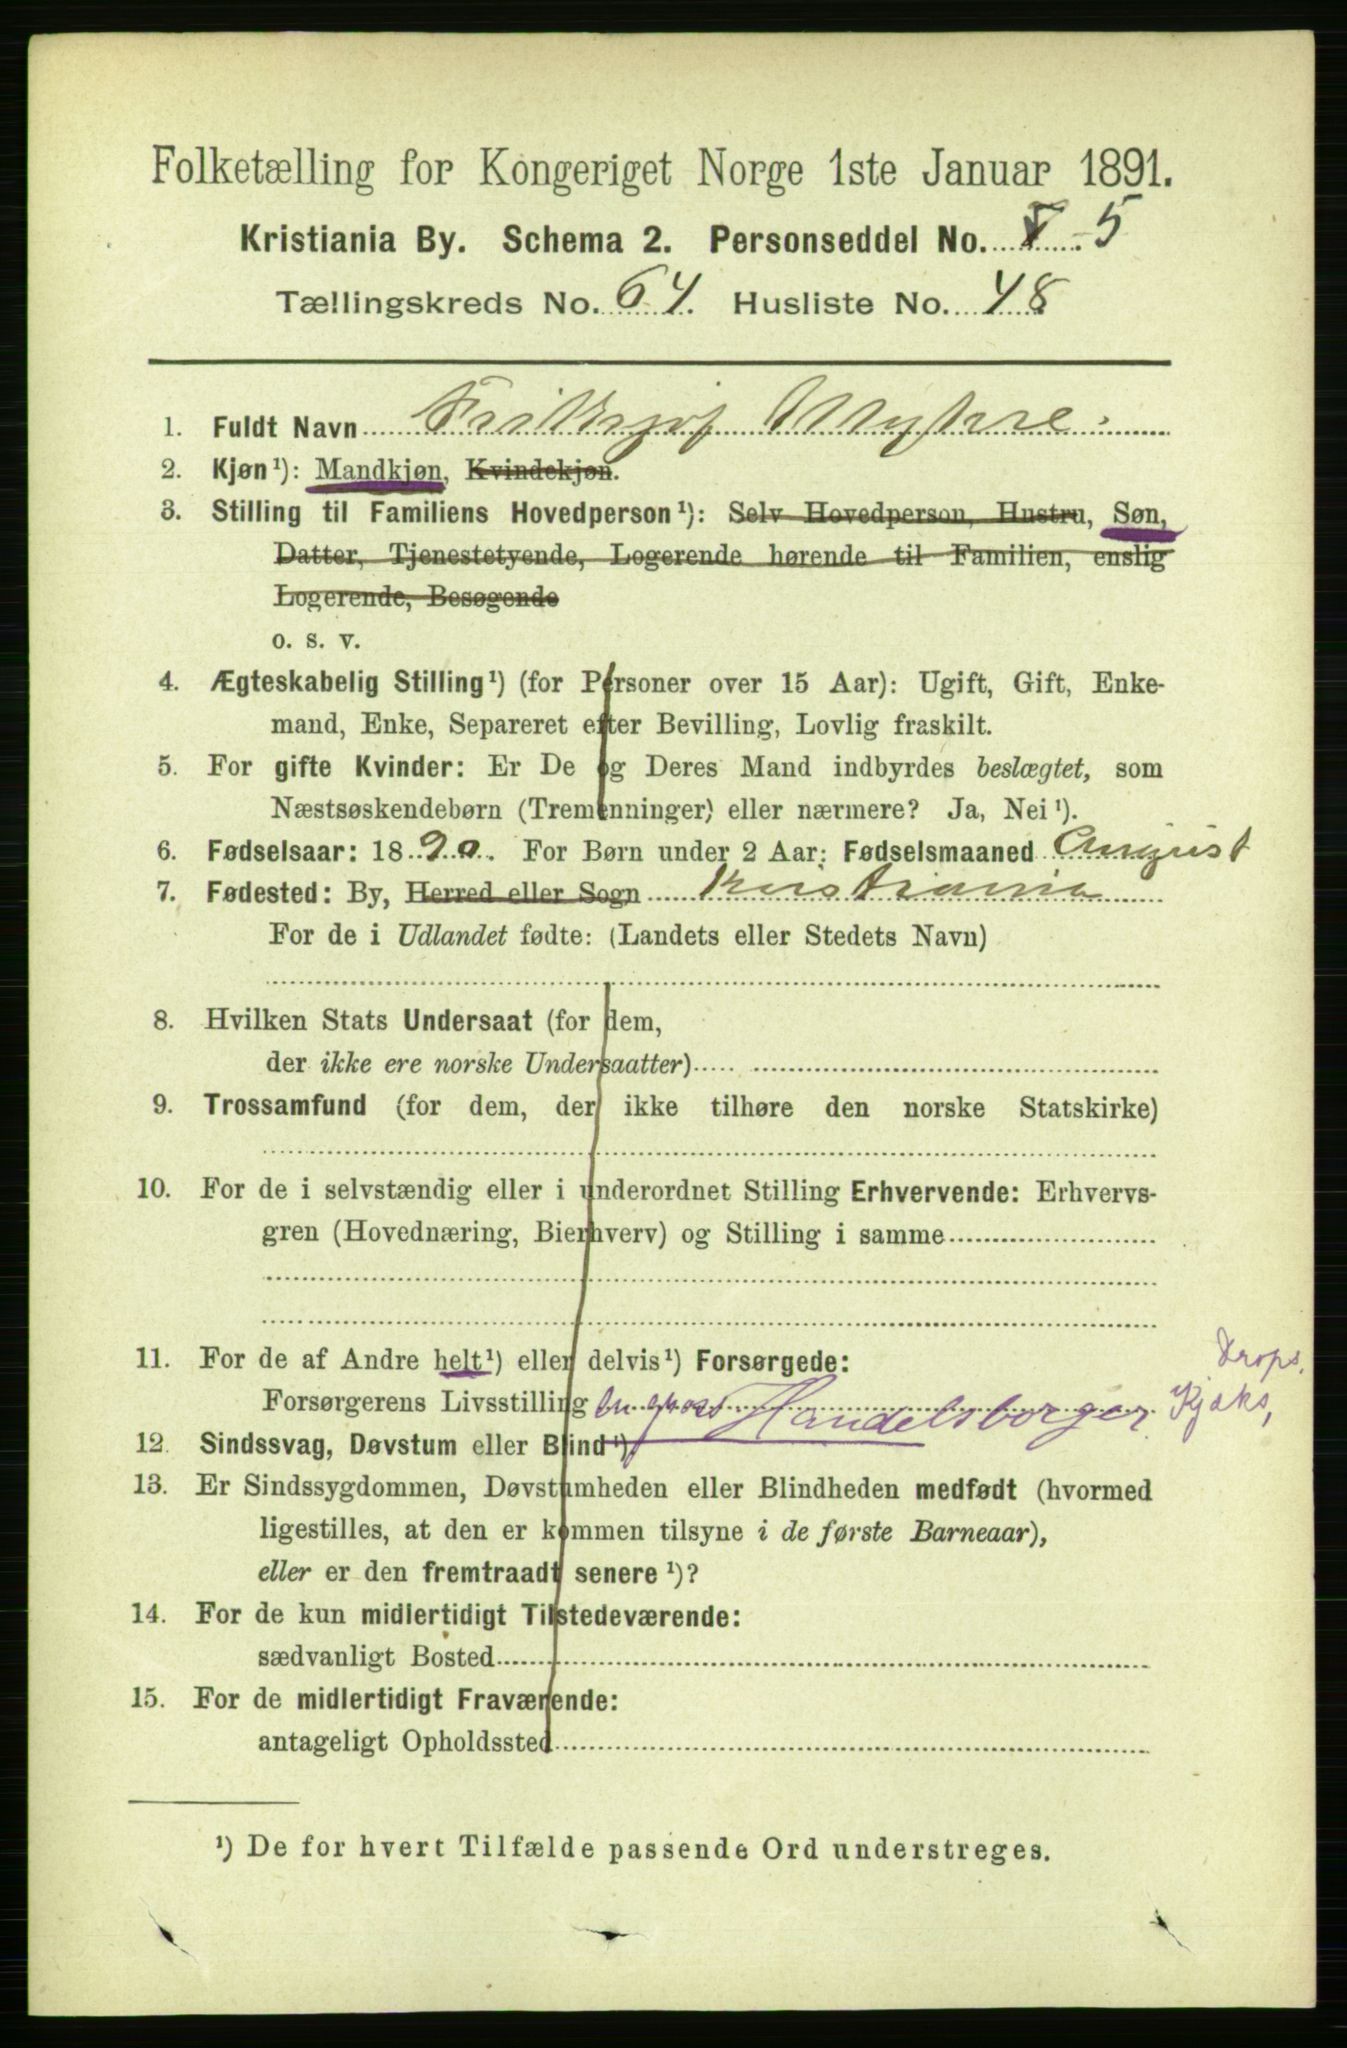 Folketælling for Kongeriget Norge 1ste Januar 1891.
Kristiania By. Schema 2. Personseddel No. 5
Tællingskreds No. 64. Husliste No. 48
1. Fuldt Navn Frithjof Myhre
2. Kjøn¹): Mandkjøn, Kvindekjøn.
3. Stilling til Familiens Hovedperson¹): Selv Hovedperson, Hustru, Søn,
Datter, Tjenestetyende, Logerende hørende til Familien, enslig
Logerende, Besøgende
o. s. v.
4. Ægteskabelig Stilling¹) (for Personer over 15 Aar): Ugift, Gift, Enke-
mand, Enke, Separeret efter Bevilling, Lovlig fraskilt.
5. For gifte Kvinder: Er De og Deres Mand indbyrdes beslægtet, som
Næstsøskendebørn (Tremenninger) eller nærmere? Ja, Nei¹).
6. Fødselsaar: 1890. For Børn under 2 Aar: Fødselsmaaned August
7. Fødested: By, Herred eller Sogn Kristiania
For de i Udlandet fødte: (Landets eller Stedets Navn)
8. Hvilken Stats Undersaat (for dem,
der ikke ere norske Undersaatter)
9. Trossamfund (for dem, der ikke tilhøre den norske Statskirke)
10. For de i selvstændig eller i underordnet Stilling Erhvervende: Erhvervs-
gren (Hovednæring, Bierhverv) og Stilling i samme
11. For de af Andre helt¹) eller delvis¹) Forsørgede:
Drops,
Forsørgerens Livsstilling en gros Handelsborger Kjæks,
12. Sindssvag, Døvstum eller Blind¹)
13. Er Sindssygdommen, Døvstumheden eller Blindheden medfødt (hvormed
ligestilles, at den er kommen tilsyne i de første Barneaar),
eller er den fremtraadt senere¹)?
14. For de kun midlertidigt Tilstedeværende:
sædvanligt Bosted
15. For de midlertidigt Fraværende:
antageligt Opholdssted
¹) De for hvert Tilfælde passende Ord understreges.